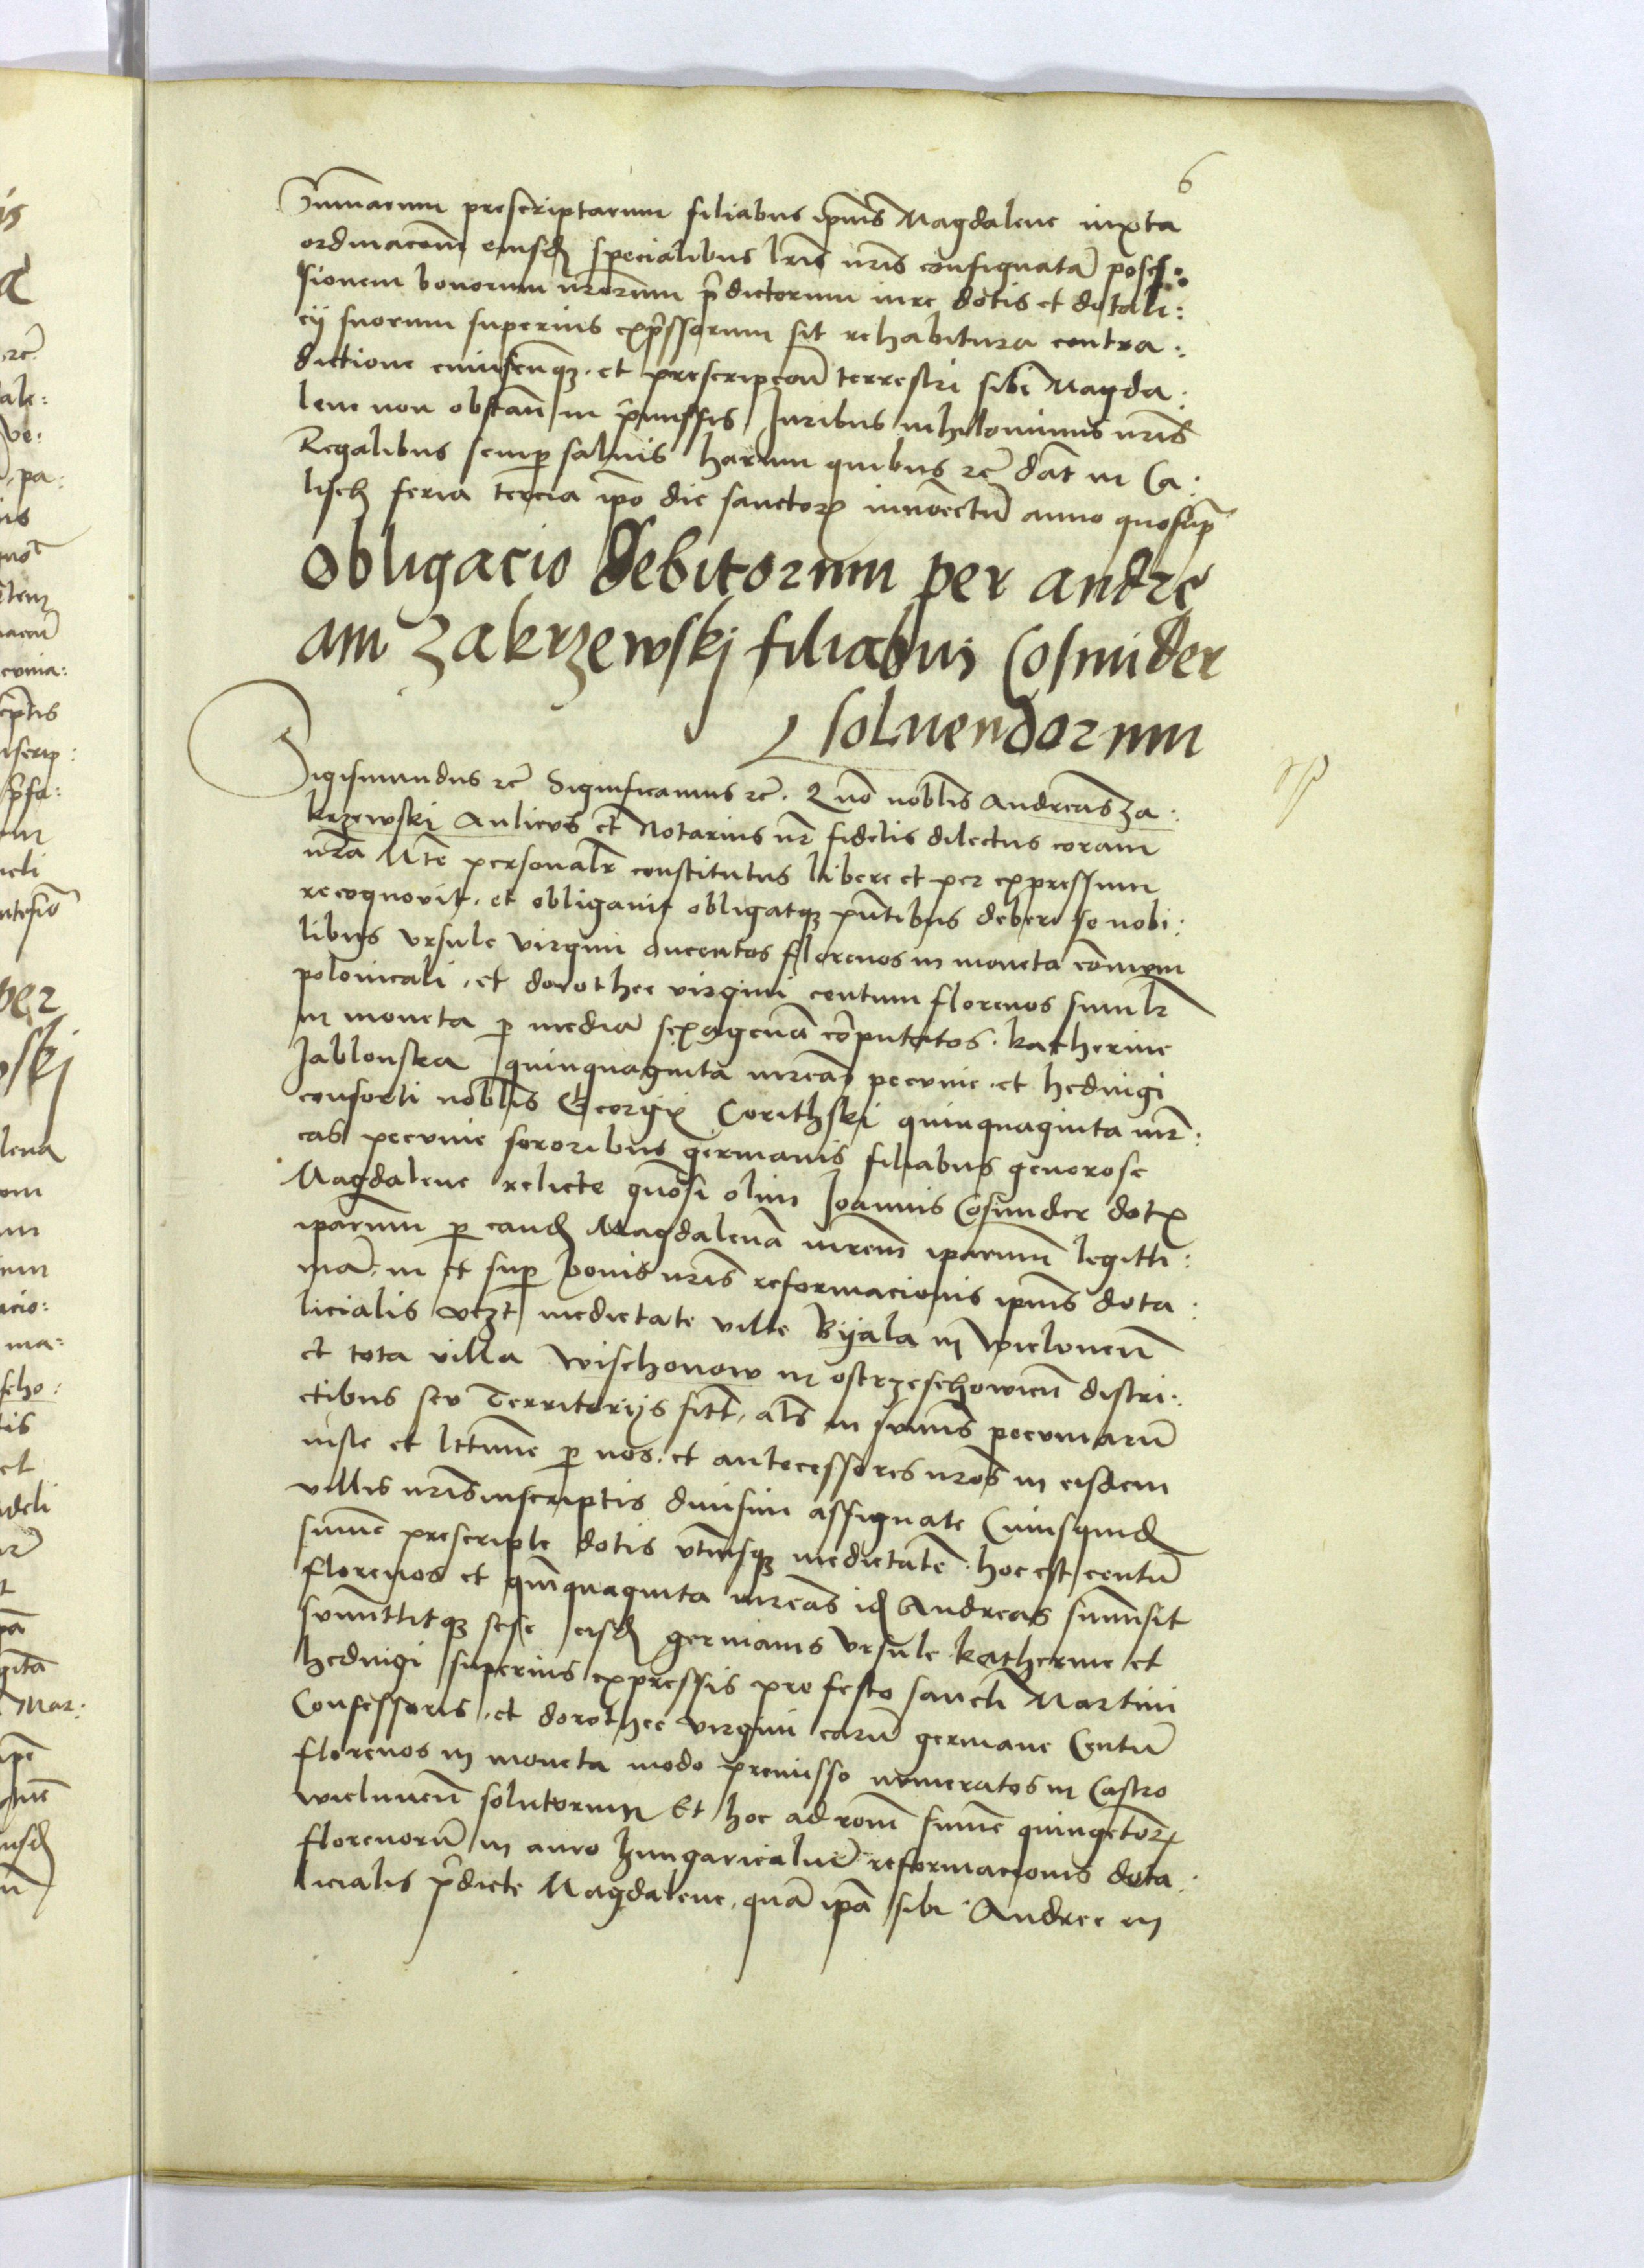 6
Summarum prescriptarum filiabus ipius Magdalene iuxta
ordinacom eiusd specialibus lris nris consignata posses:
sionem bonorum nrorum predictorum iure dotis et dotali:
cij suorum superius expssorum sit rehabitura contra:
dictione cuiuscunq. et prescripcon terrestri sibi Magda:
lene non obstan in pmissis Juribus nihilominus nris
Regalibus semp saluis harum quibus etc dat in Ca:
lisch feria tercia ipo die sanctor innocctu anno quo sup
Obligacio debitorum per andre
am Zakrzewskj filiabus Cosmider
soluendorum
Sigismundus etc Significamus etc. Quo noblis Andreas Za:
krzewski Aulicus et Notarius nr fidelis dilectus coram
nra Mte personalr constitutus libere et per expressum
recognovit. et obligauit obligatq pntibus debere se nobi:
libus Vrsule virgini ducentos florenos in moneta comuni
polonicali. et dorothee virgini centum florenos similr
in moneta p media sexagena computatos. katherine
Jablonska quinquaginta mrcas pecunie. et heduigi
consorti noblis Georgij Corithski quinquaginta mr:
cas pecunie sororibus germanis filiabus generose
Magdalene relicte gnosi olim Joannis Cosmider dote
iparum p eand Magdalena mrem iparum legitti:
ma. in et sup bonis nris reformacionis ipius dota:
licialis vezt medietate ville Byala in Wielunen
et tota villa Wischonow in ostrzeschowien distri:
ctibus seu Territorijs sitt, als in sumis pecuniaru
iuste et lttime p nos. et antecessores nros in eisdem
villis nris inscriptis diuisim assignate Cuiusquid
sume prescripte dotis vtriusq medietate. hoc est centu
florenos et quinquaginta mrcas id Andreas sumisit
sumittitq sese eisd germanis Vrsule katherine et
heduigi superius expressis pro festo sancti Martini
Confessoris. et dorothee virgini earu germane Centu
florenos in moneta modo premisso numeratos in Castro
wielunen soluturum Et hoc ad rom sume quingetor
florenoru in auro hungaricaliu reformacionis dota:
licialis pdicte Magdalene, qua ipa sibi Andree in